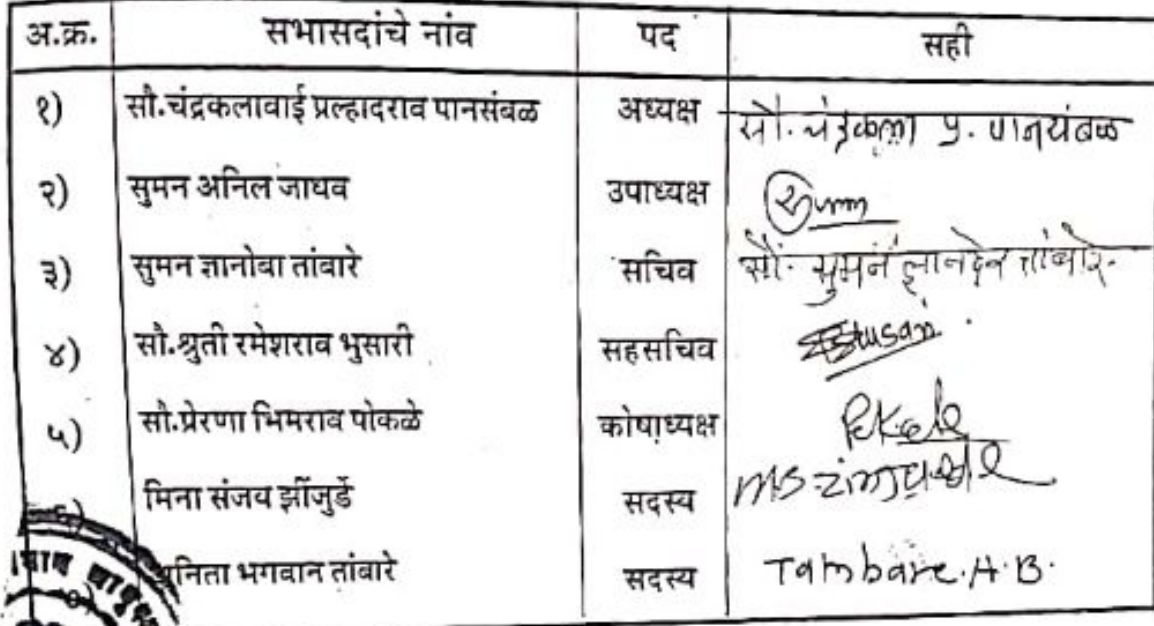 अ.क्र. सभासदांचे नांव पद सही
१) सौ.चंद्रकलावाई प्रल्हादराव पानसंबळ अध्यक्ष सौ. चंद्रकला प्र. पानसंबळ
२) सुमन अनिल जाधव उपाध्यक्ष
३) सुमन ज्ञानोबा तांबारे सचिव सौ. सुमन ज्ञानदेव तांबारे.
४) सौ.श्रुती रमेशराव भुसारी सहसचिव
५) सौ.प्रेरणा भिमराव पोकळे कोषाध्यक्ष
मिना संजय झींजुर्डे सदस्य
भगवान तांबारे सदस्य Tambare.A.B.